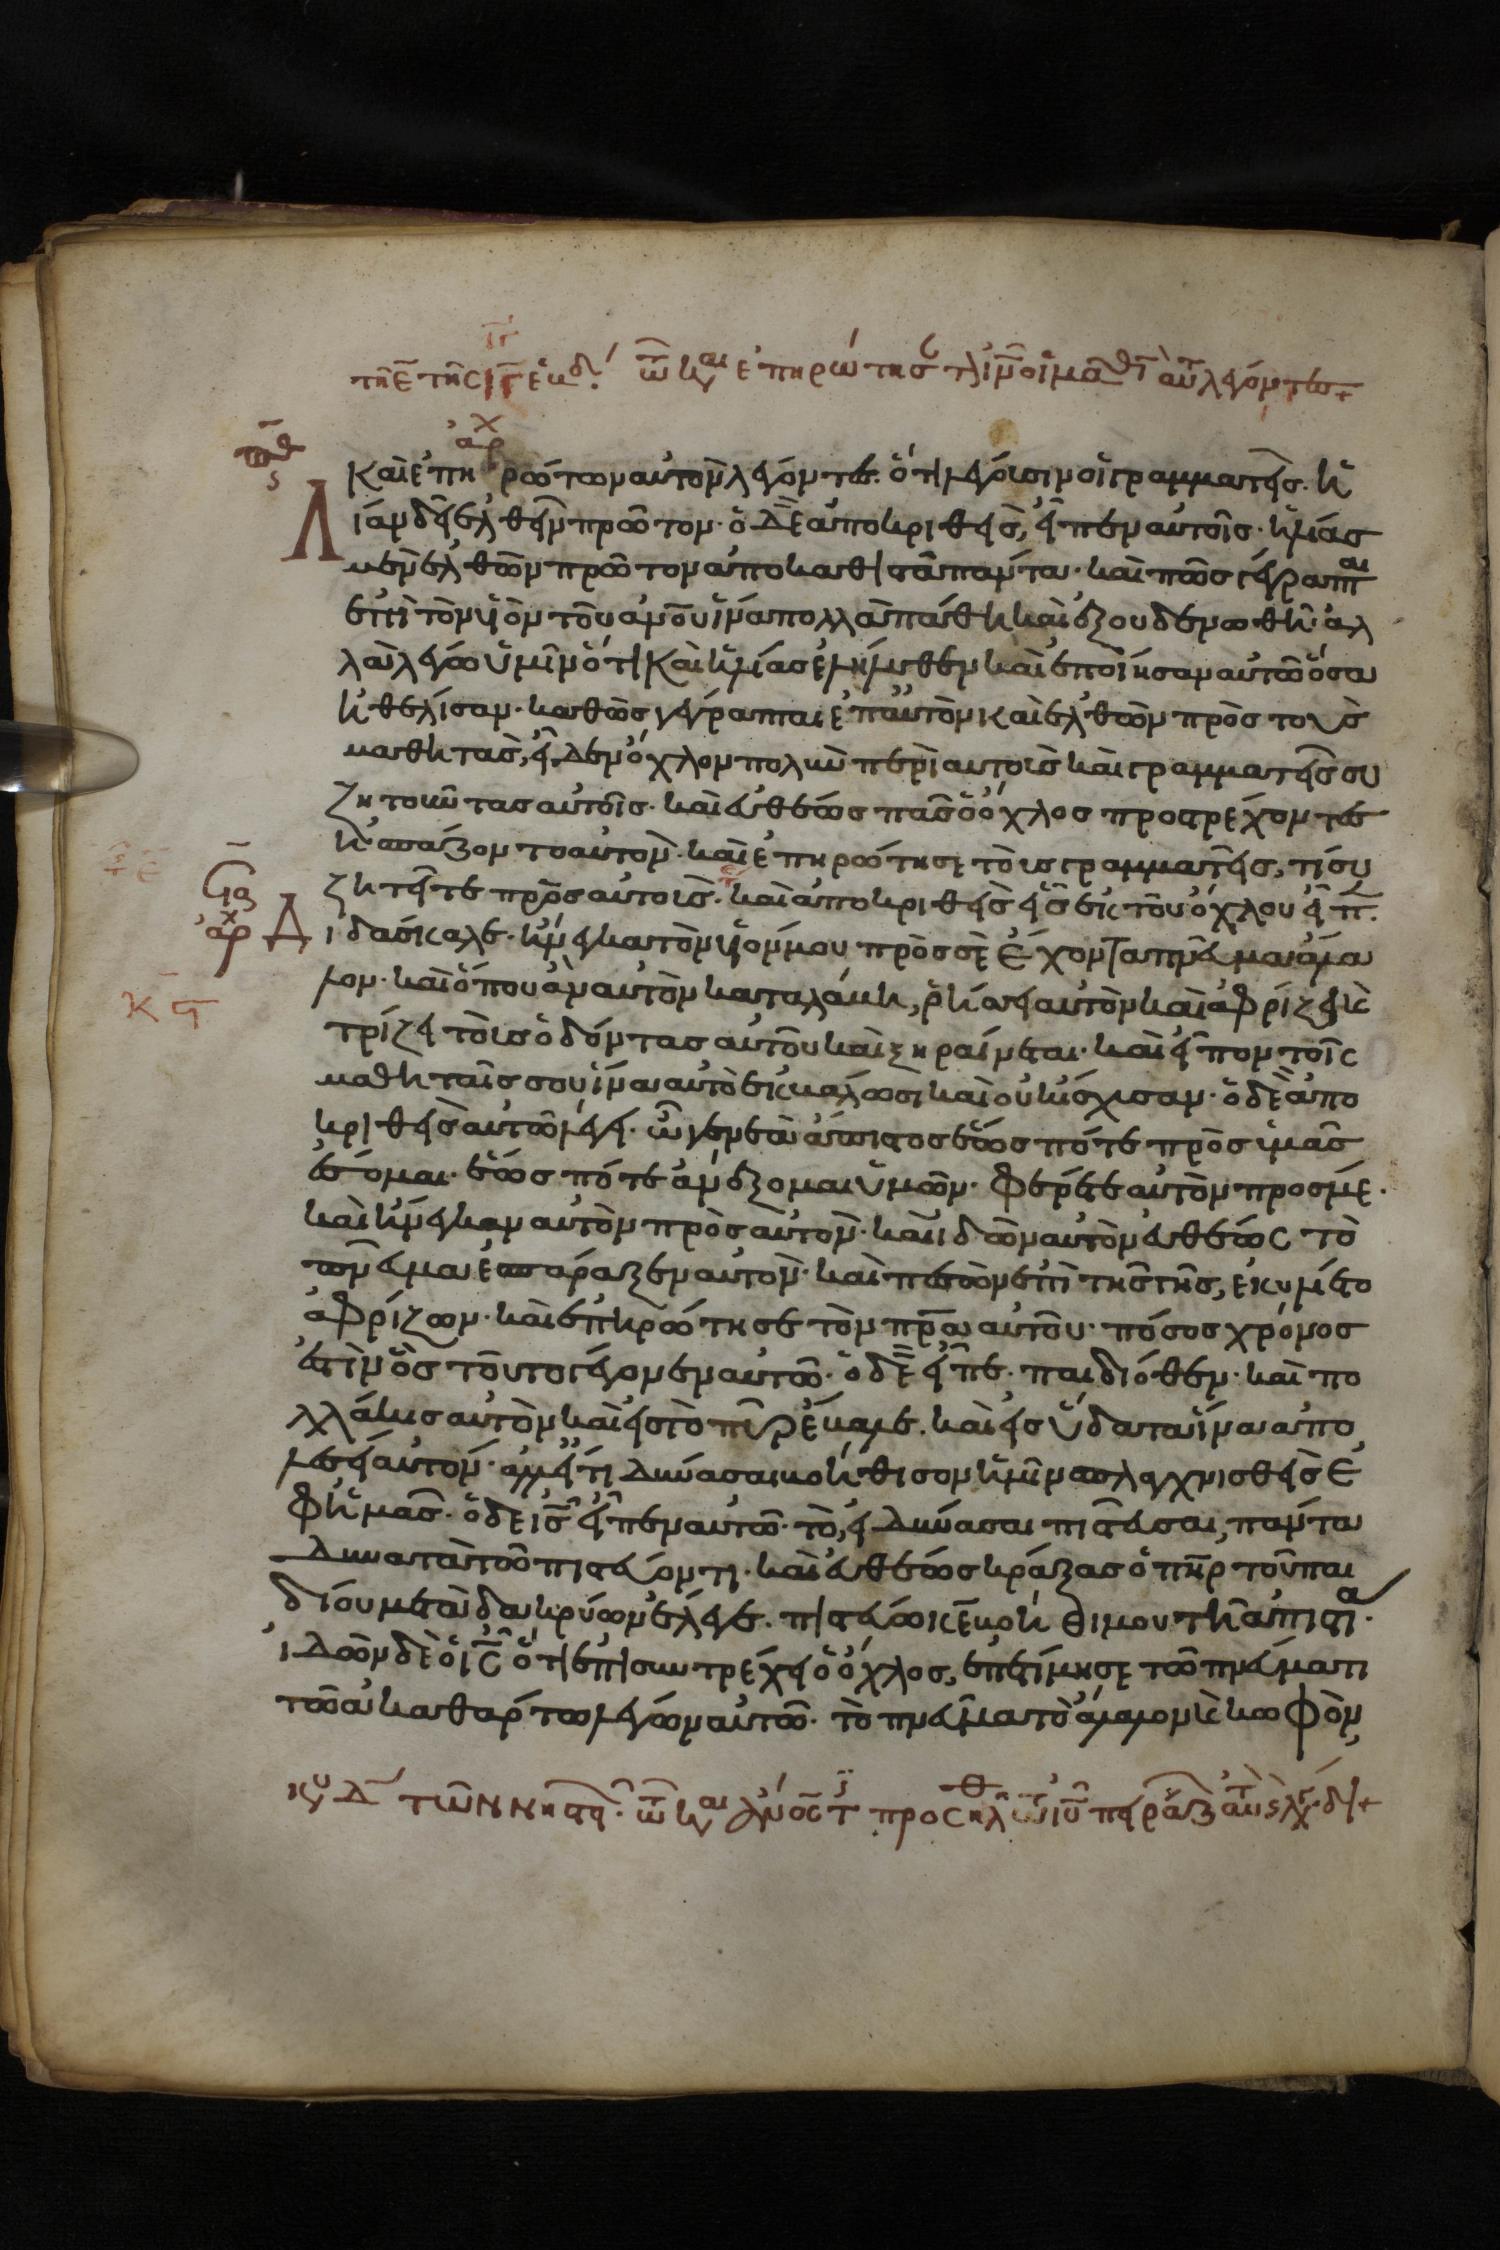 τῆ ε τῆς ιγ ἑβδ τω κ αι επηρώτησ τ ιν οἱ μαθ αυτ λέγοντες
αρχ
Και επηρώτων αυτον λέγοντες. ὅτι λέγουσιν οἱ γραμματεῖς. ἠ
λίαν δεῖ ελθεῖν πρῶτον. ὁ δὲ αποκριθεὶς, εἶπεν αυτοῖς. ἠλίας
μὲν ελθῶν πρῶτον αποκαθιστᾶ πάντα. καὶ πῶς γέγραπται
επὶ τὸν υἱὸν τοῦ ανου ἵνα πολλὰ πάθη καὶ εξουδενωθῆ. αλ
λὰ λέγω ὑμῖν ὅτι Καὶ ἠλίας ελήλυθεν καὶ εποίησαν αυτῶ ὅσα
ἠθέλισαν. καθὼς γέγραπται επ αυτὸν καὶ ελθὼν πρὸς τοὺς
μαθητὰς, εἶδεν ὄχλον πολὺν περὶ αυτοὺς καὶ γραμματεῖς συ
ζητοῦντας αυτοῖς. καὶ ευθέως πᾶς ὁ ὄχλος προστρέχοντες
ἠσπάζοντο αυτον. καὶ επηρώτησε τοὺς γραμματεῖς, τί συ
ζητεῖτε πρὸς αυτοὺς. καὶ αποκριθεὶς εἷς εκ τοῦ ὄχλου εἶπ.
Διδάσκαλε. ἤνεγκα τὸν υἱόν μου πρὸς σὲ ἔχοντα πνεῦμα ἄλα
λον. καὶ ὅπου ἂν αυτὸν καταλάβη, ρήσσει αυτὸν καὶ αφρίζει κὲ
τρίζει τοὺς ὀδόντας αυτοῦ καὶ ξηραίνεται. καὶ εἶπον τοῖς
μαθηταῖς σου ἵνα αυτὸ εκβάλωσι καὶ ουκ ίσχυσαν. ὁ δὲ απο
κριθεὶς αυτῶ λέγει. ὦ γενεὰ ἄπιστος ἕως πότε πρὸς ὑμᾶς
ἔσομαι. ἕως πότε ανέξομαι ὑμῶν. φέρετε αυτὸν πρὸς μέ.
καὶ ἤνεγκαν αυτὸν πρὸς αυτον. καὶ ιδὼν αυτὸν ευθέως τὸ
πνεῦμα εσπάραξεν αυτον. καὶ πεσὼν επὶ τῆς γῆς, εκυλίετο
αφρίζων. καὶ επηρώτησε τὸν πρα αυτοῦ. πόσος χρόνος
εστὶν ὡς τοῦτο γέγονεν αυτῶ. ὁ δὲ εἶπε. παιδιόθεν. καὶ πο
λλάκις αυτὸν καὶ εις τὸ πῦρ έβαλε. καὶ εις ὕδατα ἵνα απο
λέσει αυτόν. αλλ εί τι δύνασαι βοήθισον ἡμῖν σπλαγχνισθεὶς ε
φ ἡμᾶς. ὁ δὲ ις εἶπεν αυτῶ. τὸ, ει δύνασαι πιστεῦσαι, πάντα
δυνατὰ τῶ πιστεύοντι. καὶ ευθέως κράξας ὁ πηρ τοῦ παι
δίου μετὰ δακρύων έλεγε. πιστεύω κε βοήθι μου τῆ απιστία.
ιδὼν δὲ ὁ ις ὅτι επισυντρέχει ὁ ὄχλος, επετίμησε τῶ πνεύματι
τῶ ακαθάρτω λέγων αυτῶ. τὸ πνεῦμα τὸ άλαλον κὲ κωφὸν
κυ δ τῶν νηστει. τω κ αι ανος τ προσηλ τω ιυ πειράζ αυτ λεγ. δι